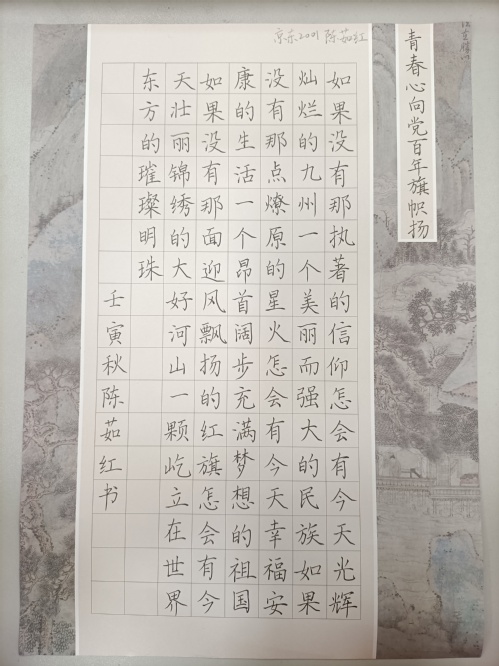 京东2001 陈茹红
青春心向党百年旗帜扬
如果没有那执著的信仰怎会有今天光辉
灿烂的九州一个美丽而强大的民族如果
没有那点燎原的星火怎会有今天幸福安
康的生活一个昂首阔步充满梦想的祖国
如果没有那面迎风飘扬的红旗怎会有今
天壮丽锦绣的大好河山一颗屹立在世界
东方的璀璨明珠
壬寅秋陈茹红书